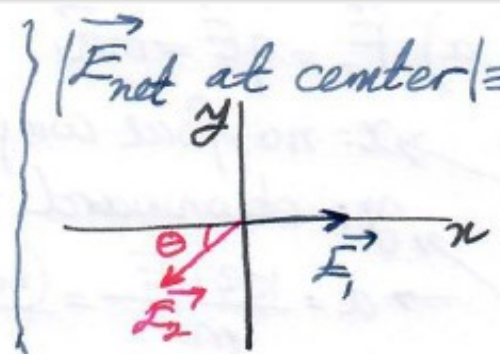 |E⃗net at center|=
y
x
θ
E⃗₁
E⃗₂